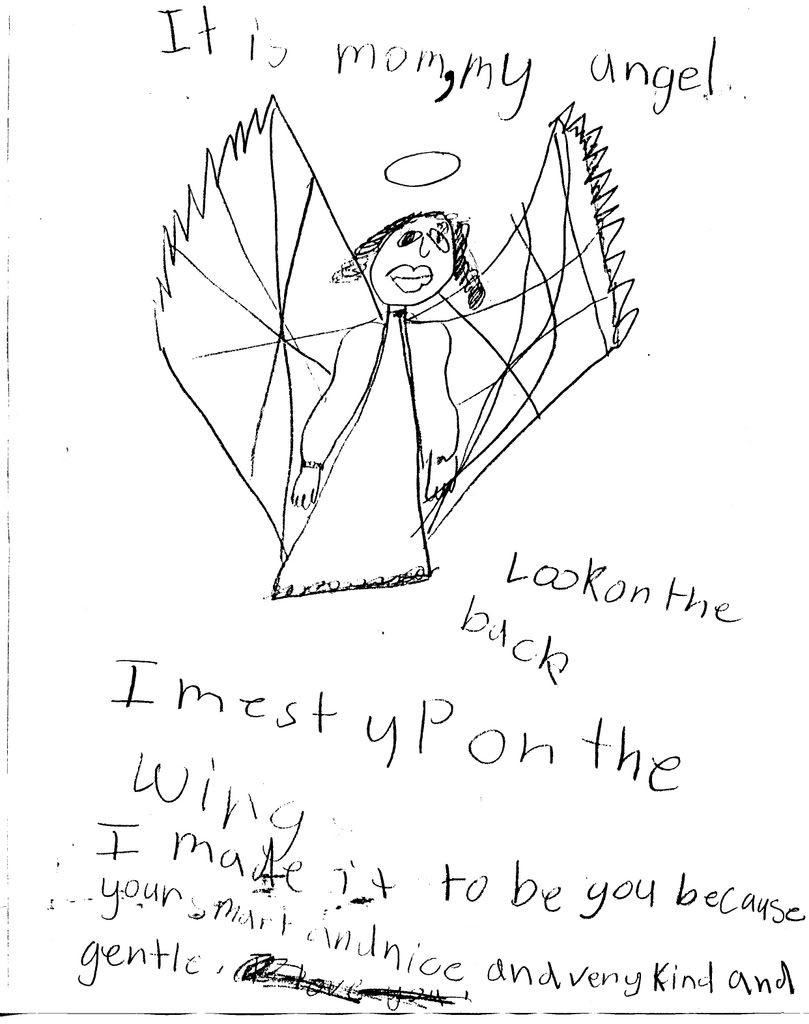 It is mom,my angel.
Look on the
back
I mest yP on the
wing
I made it to be you because
your smart and nice and very kind and
gentle. love you